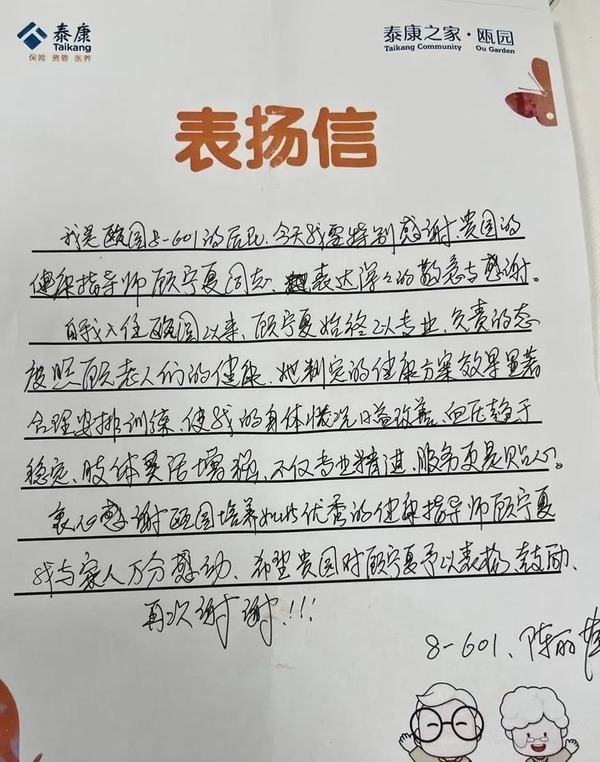 泰康
Taikang
保险 资管 医养
泰康之家·瓯园
Taikang Community Ou Garden
表扬信
我是瓯园8-601的居民、今天我要特别感谢贵园的
健康指导师顾宁夏同志、表达深々的敬意与感谢。
自我入住瓯园以来、顾宁夏始终以专业、负责的态
度照顾老人们的健康、她制定的健康方案效果显著
合理安排训练、使我的身体情况日益改善、血压趋于
稳定、肢体灵活增强、不仅专业精进、服务更是贴心。
衷心感谢瓯园培养如此优秀的健康指导师顾宁夏
我与家人万分感动、希望贵园对顾宁夏予以表扬、鼓励、
再次谢谢!!!
8-601、陈丽